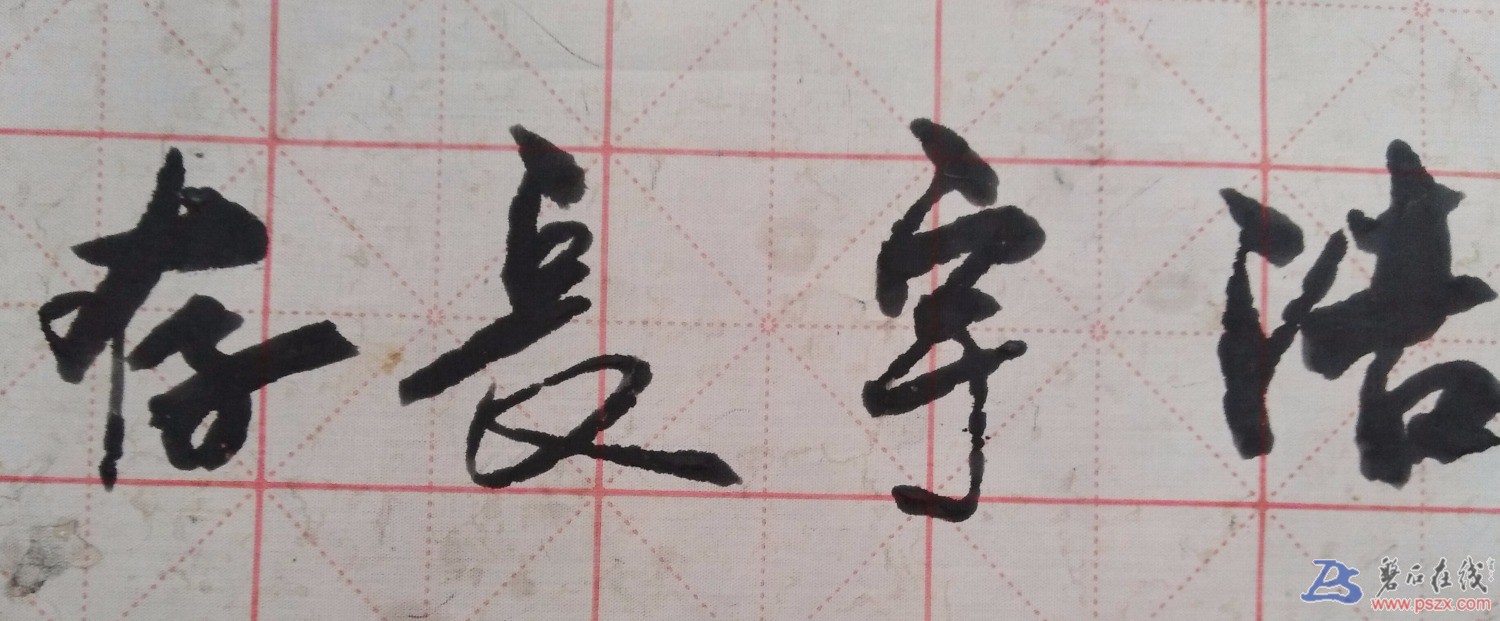 存長宇浩
磐石在线
www.pszx.com